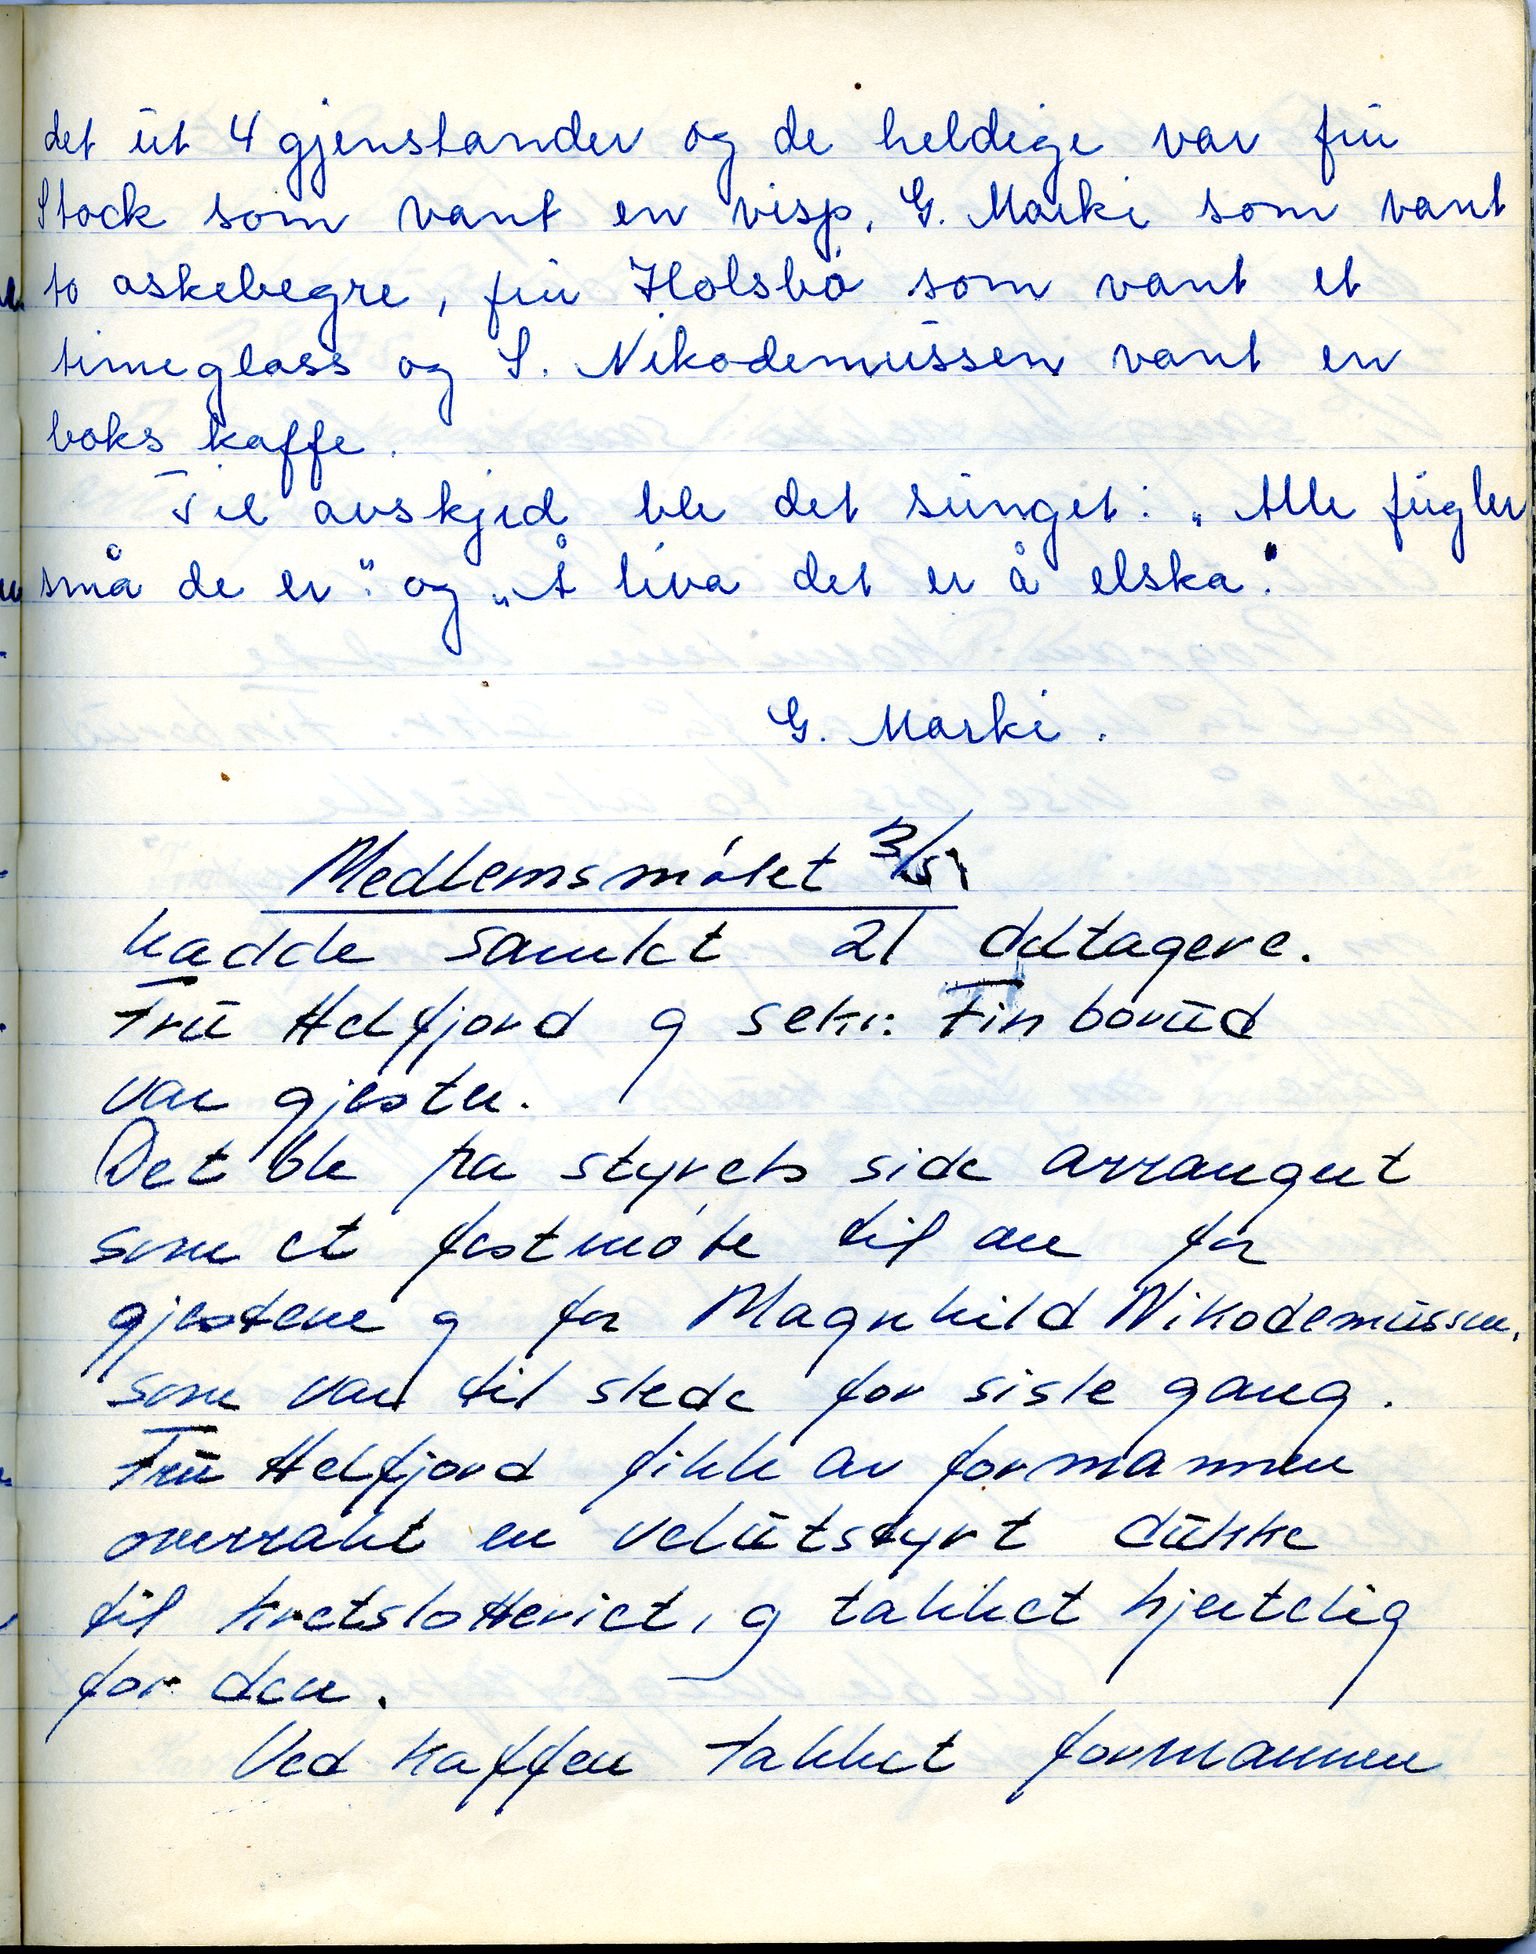 det ut 4 gjenstander og de heldige var fru
Stock som vant en visp, G. Marki som vant
to askebegre, fru Holsbö som vant et
timeglass og S. Nikodemussen vant en
boks kaffe.
Til avskjed ble det sunget: „Alle fugler
små de er." og „Å leva det er å elska."
G. Marki.
Medlemsmötet 3/5
hadde samlet 21 deltagere.
Fru Helfjord og sekr. Finborud
var gjester.
Det ble fra styrets side arrangert
som et festmöte til ære for
gjestene og for Magnhild Nikodemussen,
som var til stede for siste gang.
Fru Helfjord fikk av formannen
overrakt en velutstyrt dukke
til kretslotteriet, og takket hjertelig
for den.
Ved kaffen takket formannen